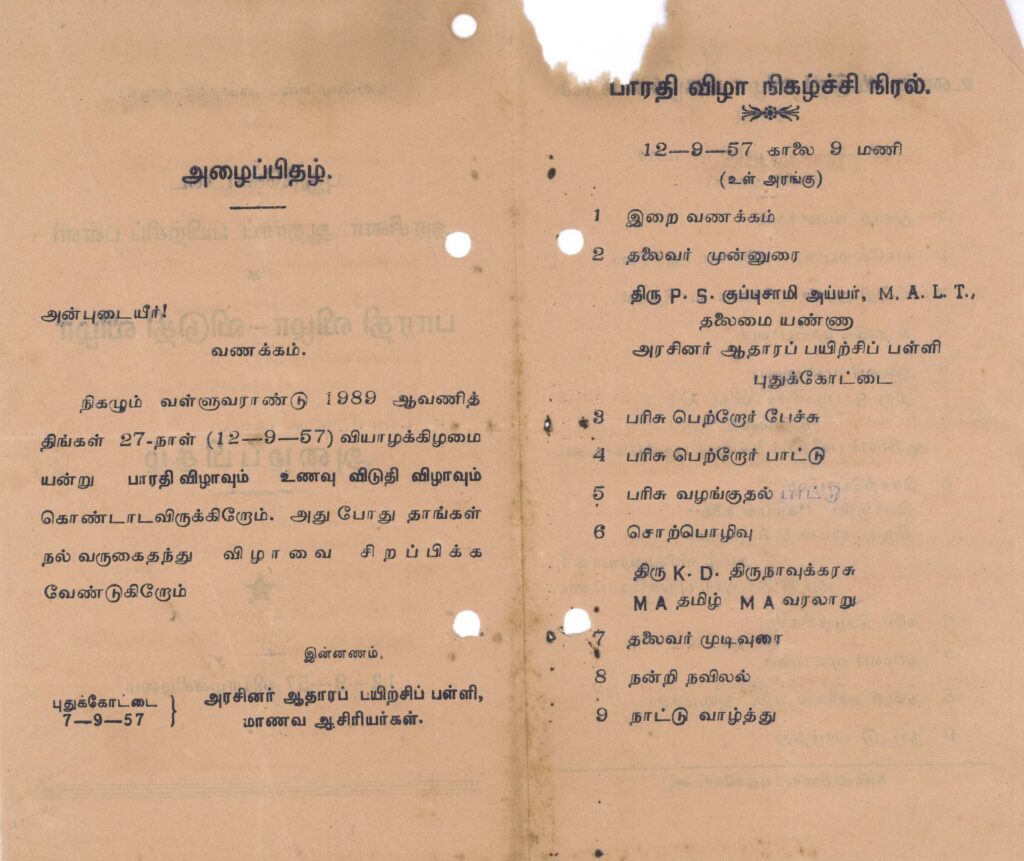 அழைப்பிதழ்.
அன்புடையீர்!
வணக்கம்.
நிகழும் வள்ளுவராண்டு 1989 ஆவணித்
திங்கள் 27-நாள் (12—9—57) வியாழக்கிழமை
யன்று பாரதி விழாவும் உணவு விடுதி விழாவும்
கொண்டாடவிருக்கிறோம். அது போது தாங்கள்
நல் வருகைதந்து விழாவை சிறப்பிக்க
வேண்டுகிறோம்
இன்னணம்,
புதுக்கோட்டை
7—9—57
அரசினர் ஆதாரப் பயிற்சிப் பள்ளி,
மாணவ ஆசிரியர்கள்.
பாரதி விழா நிகழ்ச்சி நிரல்.
12—9—57 காலை 9 மணி
(உள் அரங்கு)
1 இறை வணக்கம்
2 தலைவர் முன்னுரை
திரு P. S. குப்புசாமி அய்யர், M. A. L. T.,
தலைமை யண்ணா
அரசினர் ஆதாரப் பயிற்சிப் பள்ளி
புதுக்கோட்டை
3 பரிசு பெற்றோர் பேச்சு
4 பரிசு பெற்றோர் பாட்டு
5 பரிசு வழங்குதல் பாட்டு
6 சொற்பொழிவு
திரு K. D. திருநாவுக்கரசு
M A தமிழ் M A வரலாறு
7 தலைவர் முடிவுரை
8 நன்றி நவிலல்
9 நாட்டு வாழ்த்து